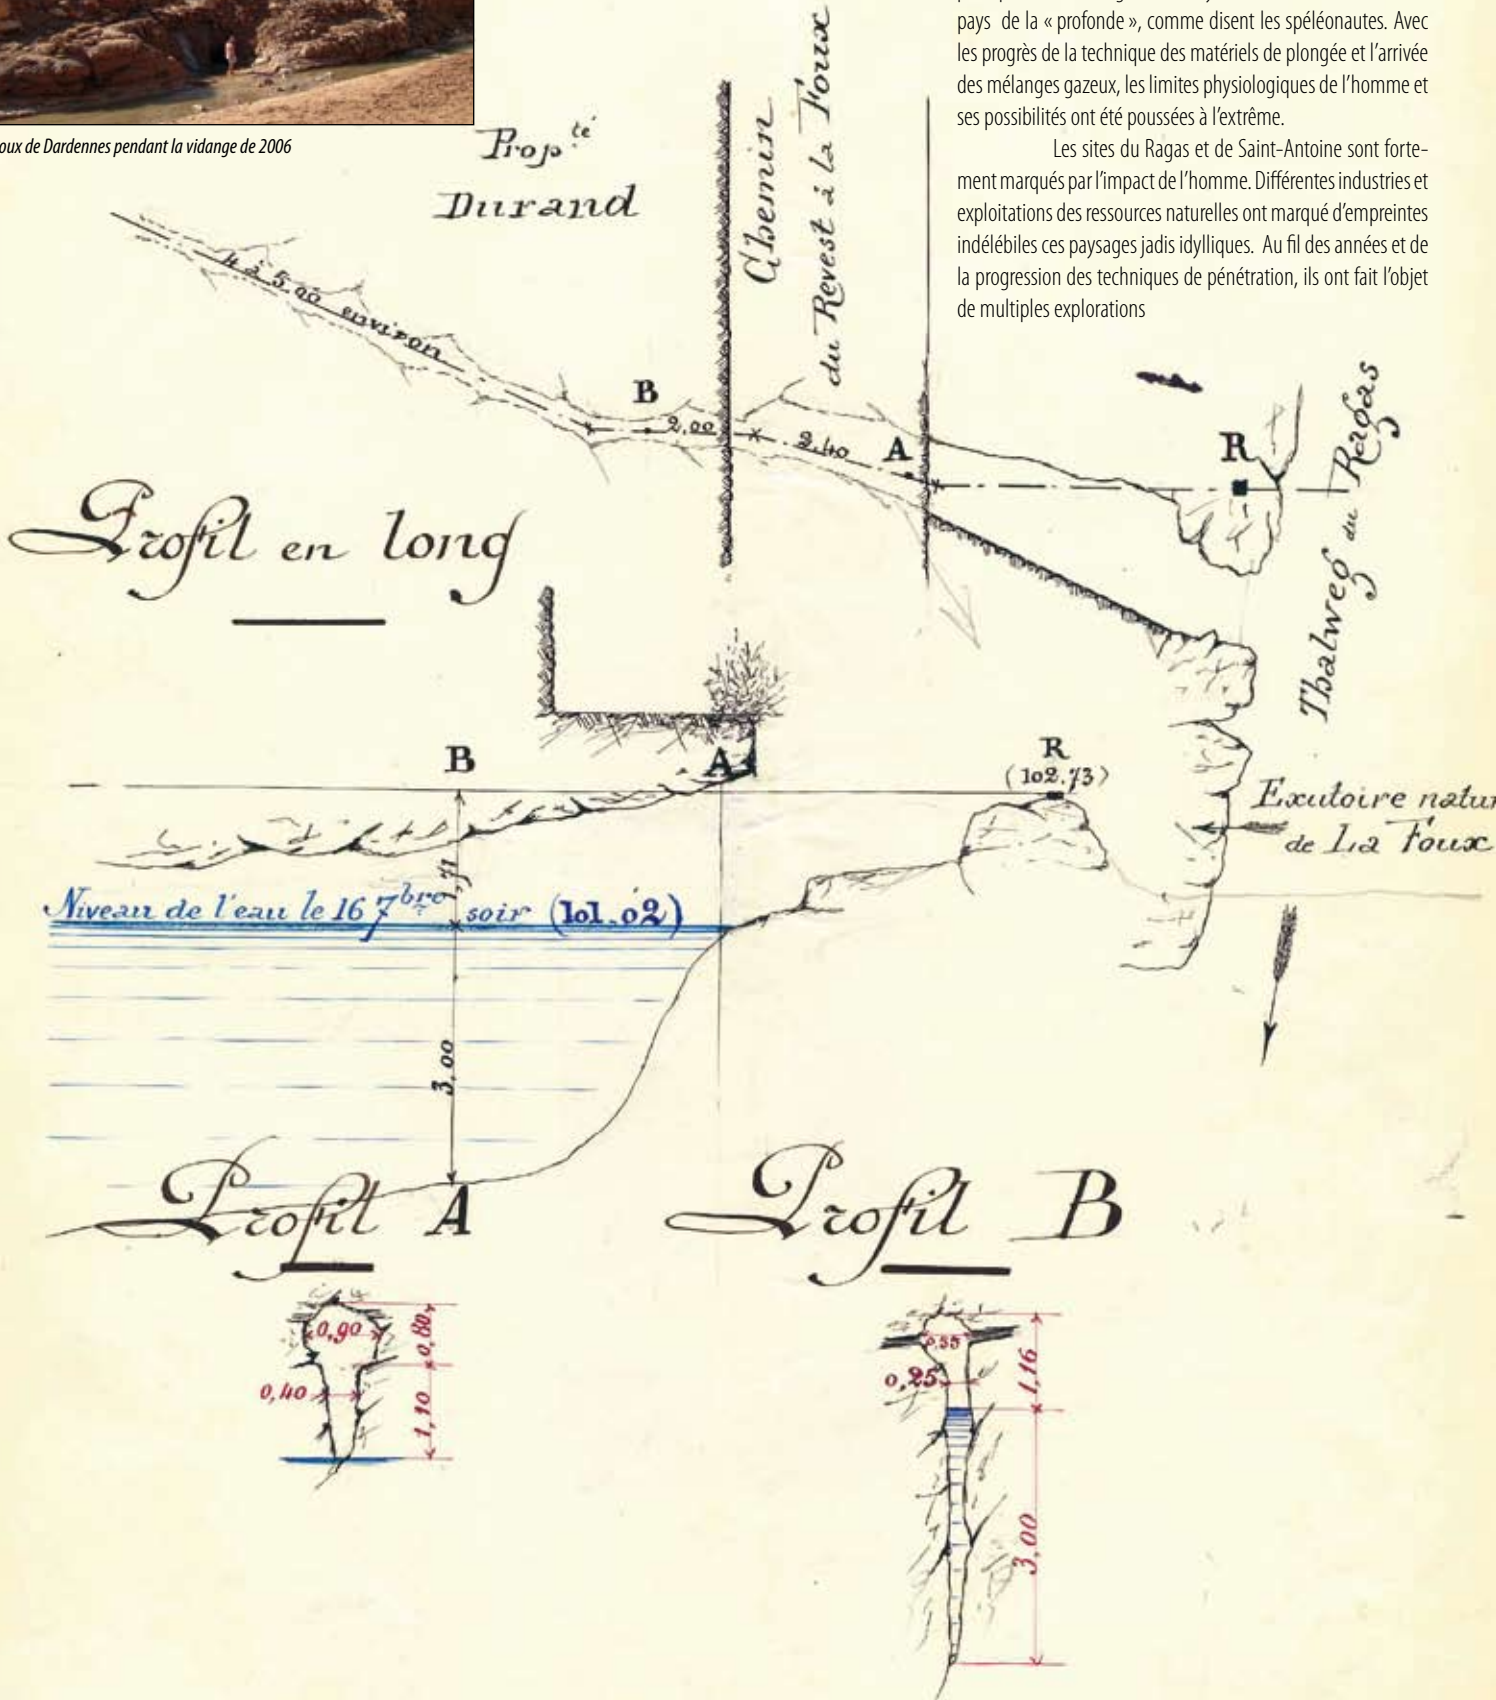 pays de la « profonde », comme disent les spéléonautes. Avec
les progrès de la technique des matériels de plongée et l'arrivée
des mélanges gazeux, les limites physiologiques de l'homme et
ses possibilités ont été poussées à l'extrême.
Les sites du Ragas et de Saint-Antoine sont forte-
ment marqués par l'impact de l'homme. Différentes industries et
exploitations des ressources naturelles ont marqué d'empreintes
indélébiles ces paysages jadis idylliques. Au fil des années et de
la progression des techniques de pénétration, ils ont fait l'objet
de multiples explorations
oux de Dardennes pendant la vidange de 2006
Prop.té
Durand
Chemin
du Revest à la Foux
4 à 5.00 environ
B
2,00
3.40
A
R
Thalweg du Ragas
Profil en long
B
A
R
(102.73)
Exutoire natur
de La Foux
1,71
Niveau de l'eau le 16 7bre soir (101.02)
3,00
Profil A
Profil B
0,90
0,80
0,40
1,10
0,55
0,25
1,16
3,00